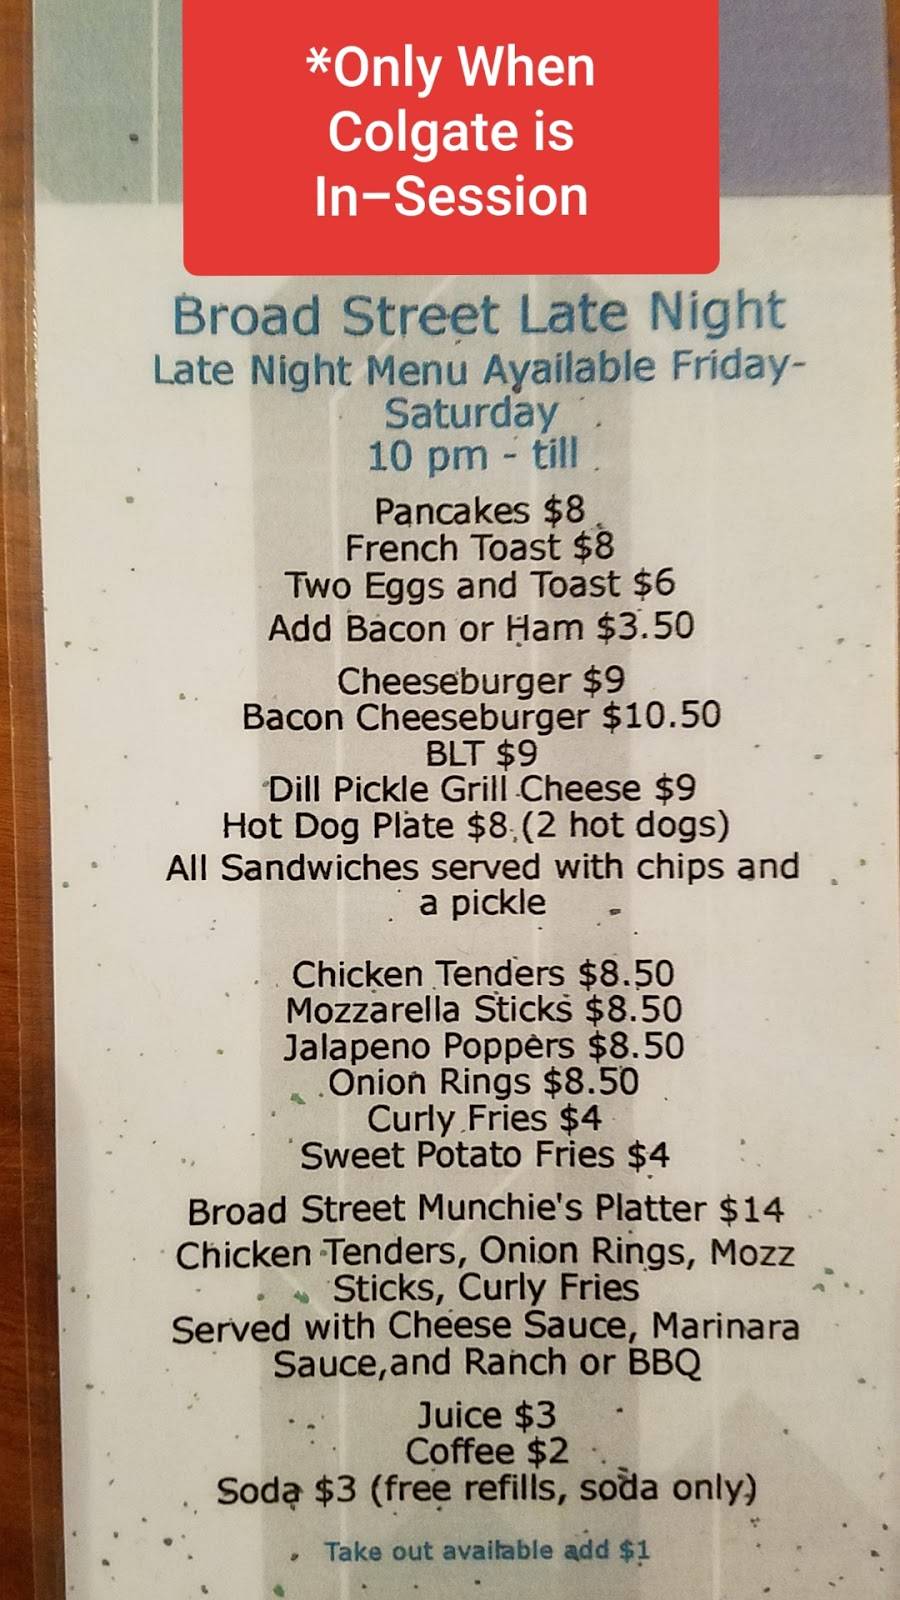 *Only When
Colgate is
In–Session
Broad Street Late Night
Late Night Menu Available Friday-
Saturday
10 pm - till
Pancakes $8
French Toast $8
Two Eggs and Toast $6
Add Bacon or Ham $3.50
Cheeseburger $9
Bacon Cheeseburger $10.50
BLT $9
Dill Pickle Grill Cheese $9
Hot Dog Plate $8 (2 hot dogs)
All Sandwiches served with chips and
a pickle
Chicken Tenders $8.50
Mozzarella Sticks $8.50
Jalapeno Poppers $8.50
Onion Rings $8.50
Curly Fries $4
Sweet Potato Fries $4
Broad Street Munchie's Platter $14
Chicken Tenders, Onion Rings, Mozz
Sticks, Curly Fries
Served with Cheese Sauce, Marinara
Sauce,and Ranch or BBQ
Juice $3
Coffee $2
Soda $3 (free refills, soda only)
Take out available add $1